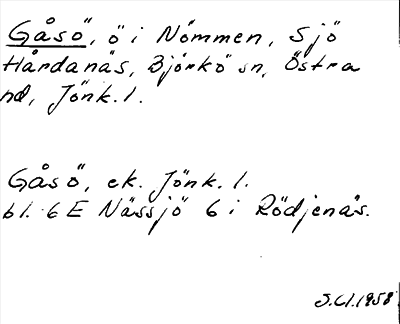 Gåsö, ö i Nömmen, sjö
Hårdanäs, Björkö sn, Östra
hd, Jönk. l.
Gåsö, ek. Jönk. l.
bl. 6 E Nässjö 6 i Rödjenäs.
1958